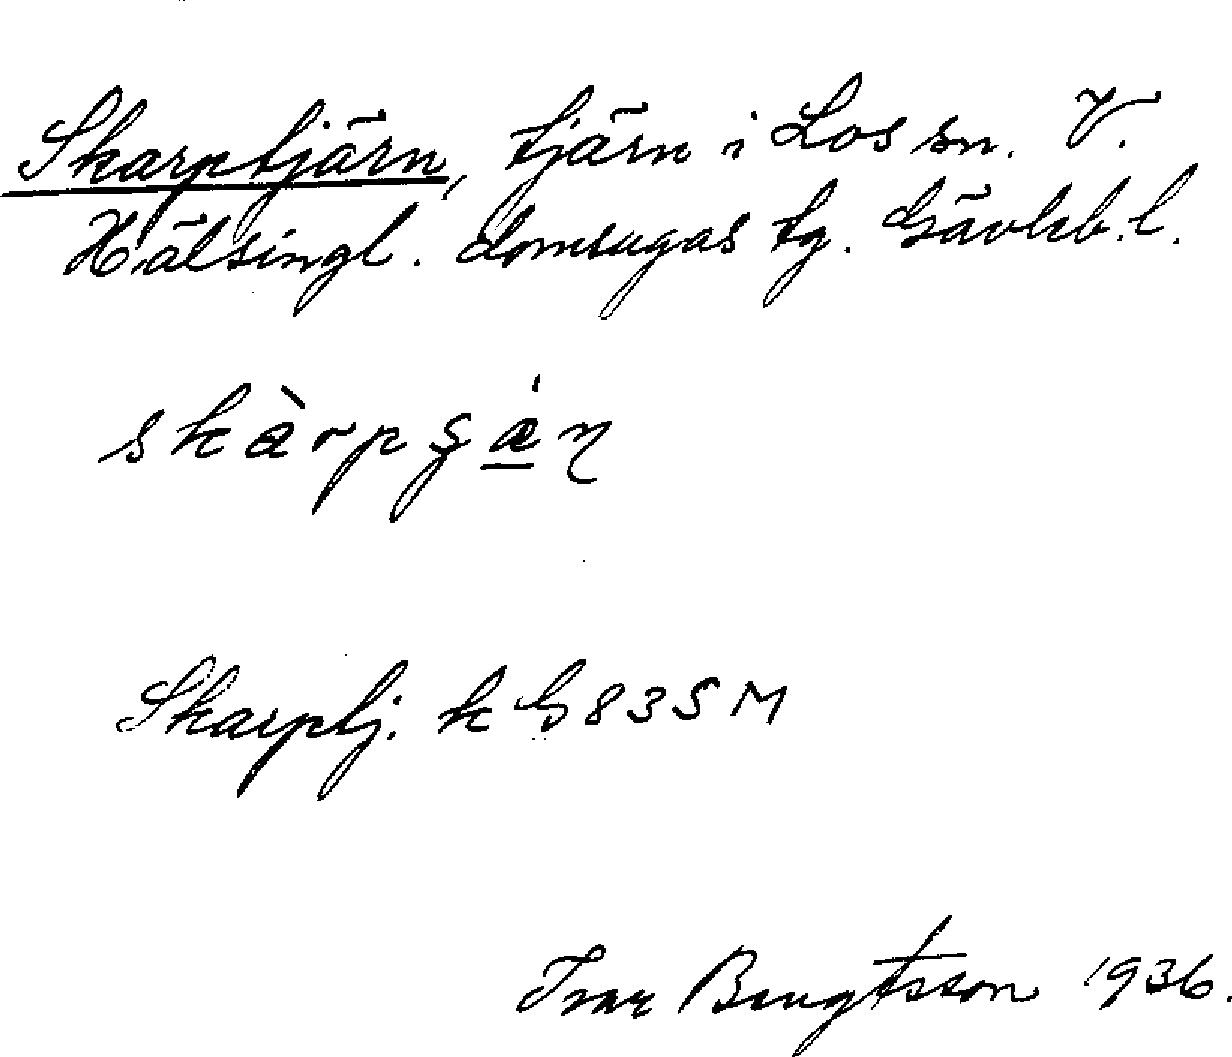 Skarptjärn, tjärn i Los sn. V.
Hälsingl. domsagas tg. Gävleb. l.
skàrpʂæ̲̇ɳ
Skarptj. k G 83 S M
Ivar Bengtsson 1936.